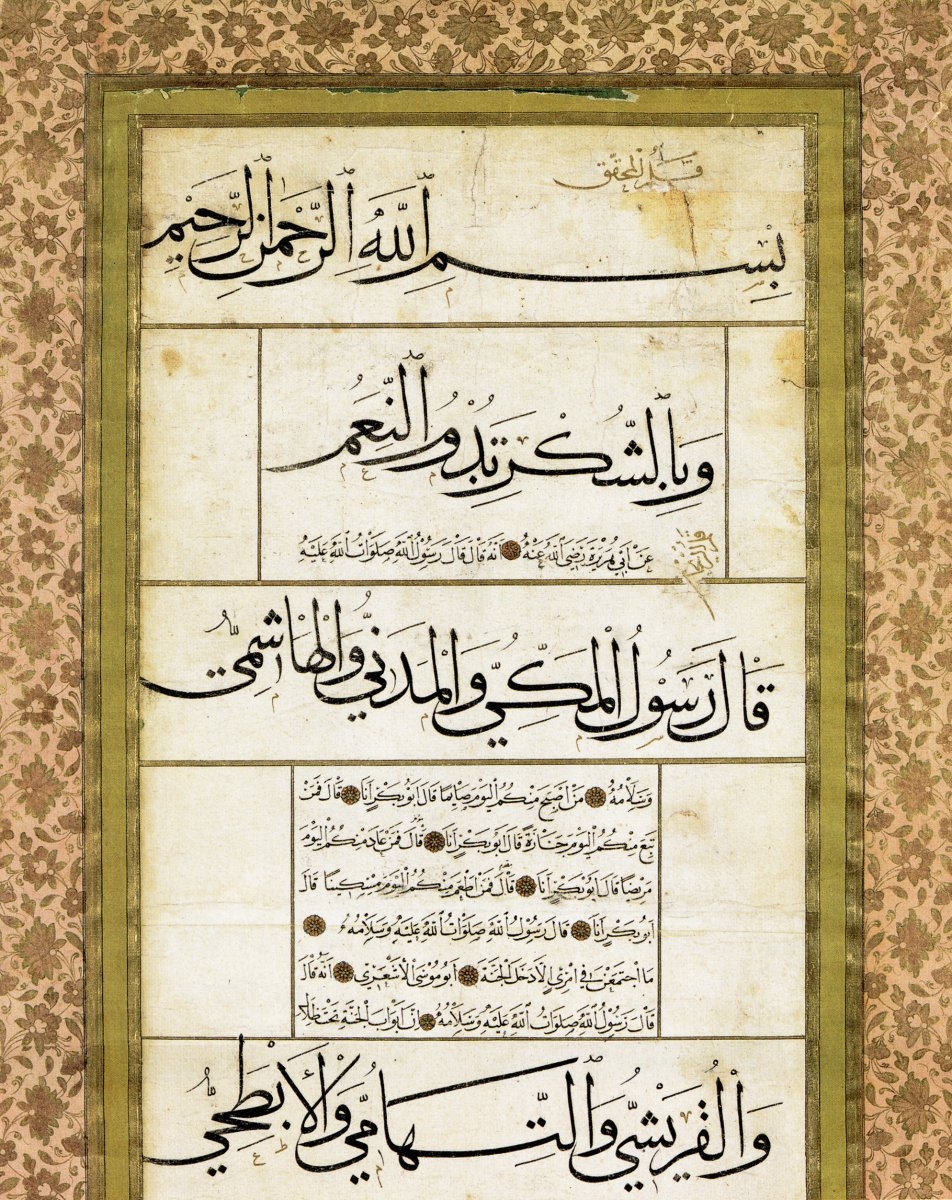 قلم المحقق
بِسْمِ ٱللَّهِ ٱلرَّحْمٰنِ ٱلرَّحِيْمِ
وَبِٱلشُّكْرِ تَدُوْمُ ٱلنِّعَمُ
عَنْ اَبِي هُرَيْرَةَ رَضِيَ ٱللَّهُ عَنْهُ اَنَّهُ قَالَ قَالَ رَسُوْلُ ٱللَّهِ صَلَوَاتُ ٱللَّهِ عَلَيْهِ
قَالَ رَسُوْلُ الْمَكِّيِّ وَالْمَدَنِيِّ وَالْهَاشِمِيِّ
وَسَلَامُهُ مَنْ اَصْبَحَ مِنْكُمُ الْيَوْمَ صَايِمًا قَالَ اَبُو بَكْرٍ اَنَا قَالَ فَمَنْ
تَبِعَ مِنْكُمُ الْيَوْمَ جَنَازَةً قَالَ اَبُو بَكْرٍ اَنَا قَالَ فَمَنْ عَادَ مِنْكُمُ الْيَوْمَ
مَرِيْضًا قَالَ اَبُو بَكْرٍ اَنَا قَالَ فَمَنْ اَطْعَمَ مِنْكُمُ الْيَوْمَ مِسْكِيْنًا قَالَ
اَبُو بَكْرٍ اَنَا قَالَ رَسُوْلُ ٱللَّهِ صَلَوَاتُ ٱللَّهِ عَلَيْهِ وَسَلَامُهُ
مَا اجْتَمَعْنَ فِي امْرِئٍ اِلَّا دَخَلَ الْجَنَّةَ اَبُو مُوْسَى الْاَشْعَرِيّ اَنَّهُ قَالَ
قَالَ رَسُوْلُ ٱللَّهِ صَلَوَاتُ ٱللَّهِ عَلَيْهِ وَسَلَامُهُ اِنَّ اَبْوَابَ الْجَنَّةِ تَحْتَ ظِلَالِ
وَالْقُرَيْشِيِّ وَالتِّهَامِيِّ وَالْاَبْطَحِيِّ